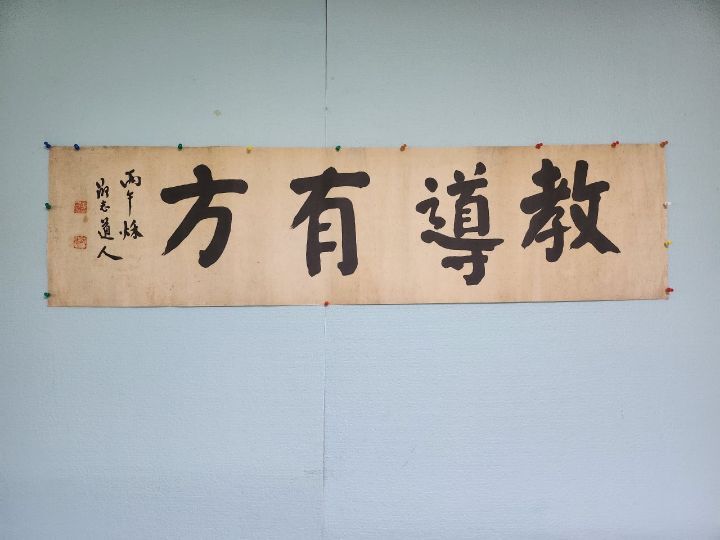 教導有方
丙午秌
志道人